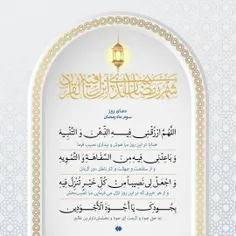 شهر رمضان الذي أنزل فيه القرآن
دعای روز
سوم ماه رمضان
اللَّهُمَّ ارْزُقْنِي فِيهِ الذِّهْنَ وَ التَّنْبِيهَ
خدایا در این روز مرا هوش و بیداری نصیب فرما
وَ بَاعِدْنِي فِيهِ مِنَ السَّفَاهَةِ وَ التَّمْوِيهِ
و از سفاهت و جهالت و کار باطل دور گردان
وَ اجْعَلْ لِي نَصِيباً مِنْ كُلِّ خَيْرٍ تُنْزِلُ فِيهِ
و از هر خیری که در این روز نازل می‌فرمایی مرا نصیب بخش
بِجُودِكَ يَا أَجْوَدَ الْأَجْوَدِينَ
به حق جود و کرمت ای جود و بخشش‌دارترین عالم